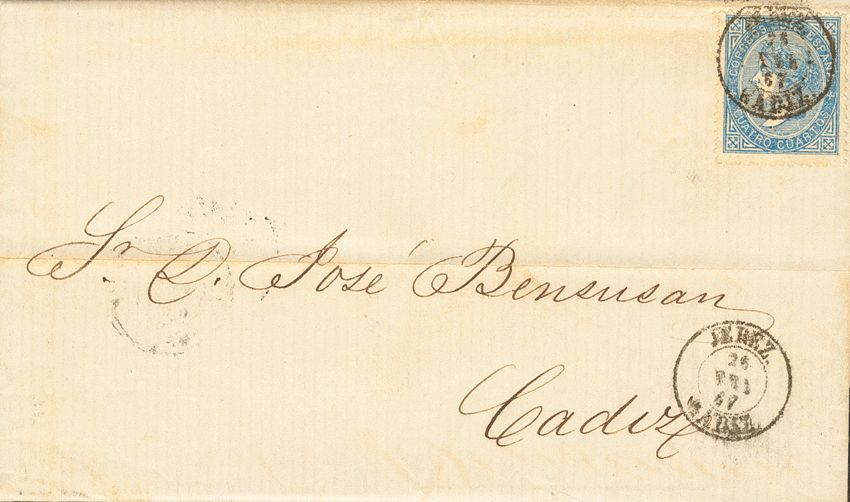 CORREOS DE ESPAÑA
26
67
CADIZ.
CUATRO CUARTOS
Sr. D. José Bensusan
Cadiz
JEREZ.
26
67
CADIZ.